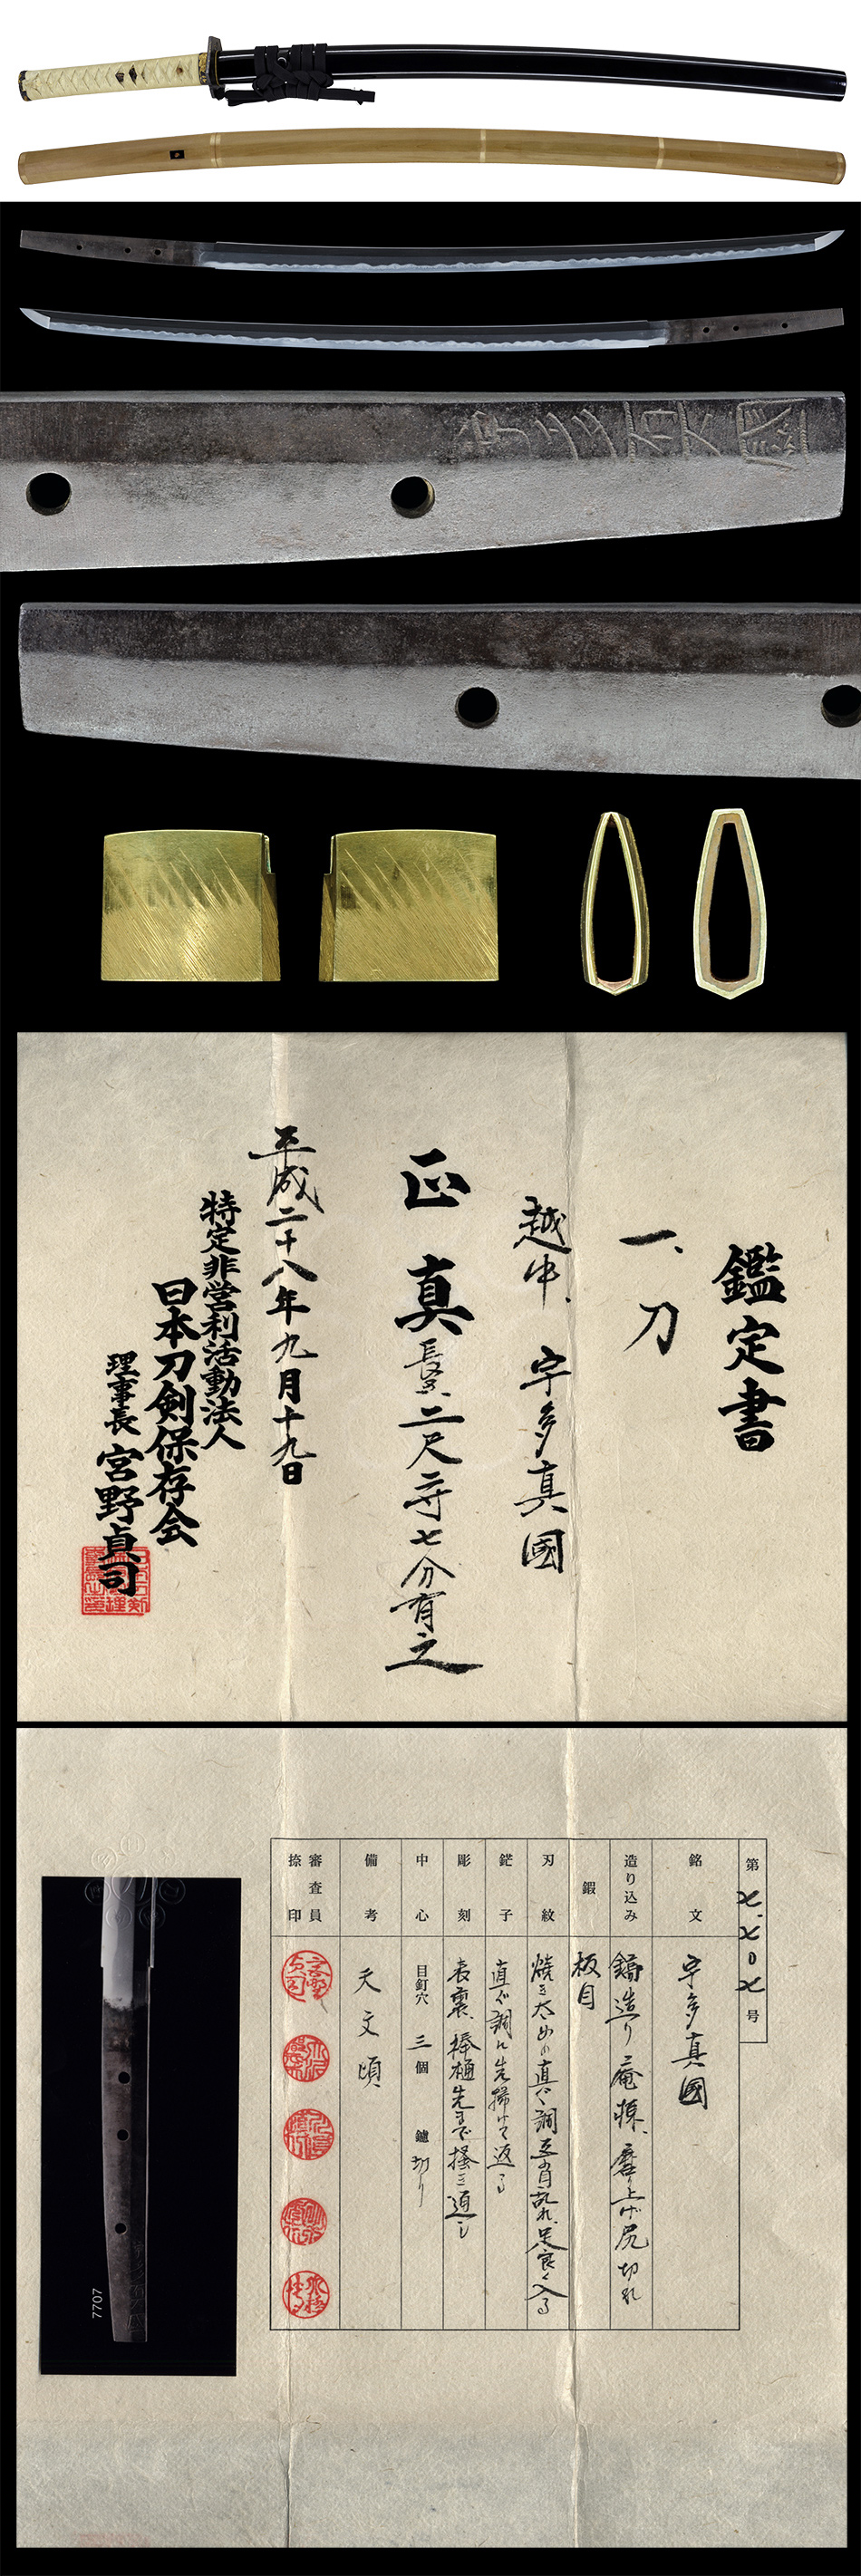 宇多真國
鑑定書
一、刀
越中、宇多真國
正真 長サ、二尺二寸七分有之
平成二十八年九月十九日
特定非営利活動法人
日本刀剣保存会
理事長 宮野貞司
第 七七〇七 号
銘文 宇多真國
造り込み 鎬造り 庵棟、磨り上げ尻切れ
鍛 板目
刃紋 焼き太めの直ぐ調互の目乱れ、足良く入る
鋩子 直ぐ調に先掃けて返る
彫刻 表裏、棒樋先まで掻き通し
中心 目釘穴 三個 鑢 切り
備考 天文頃
審査員
捺印
7707